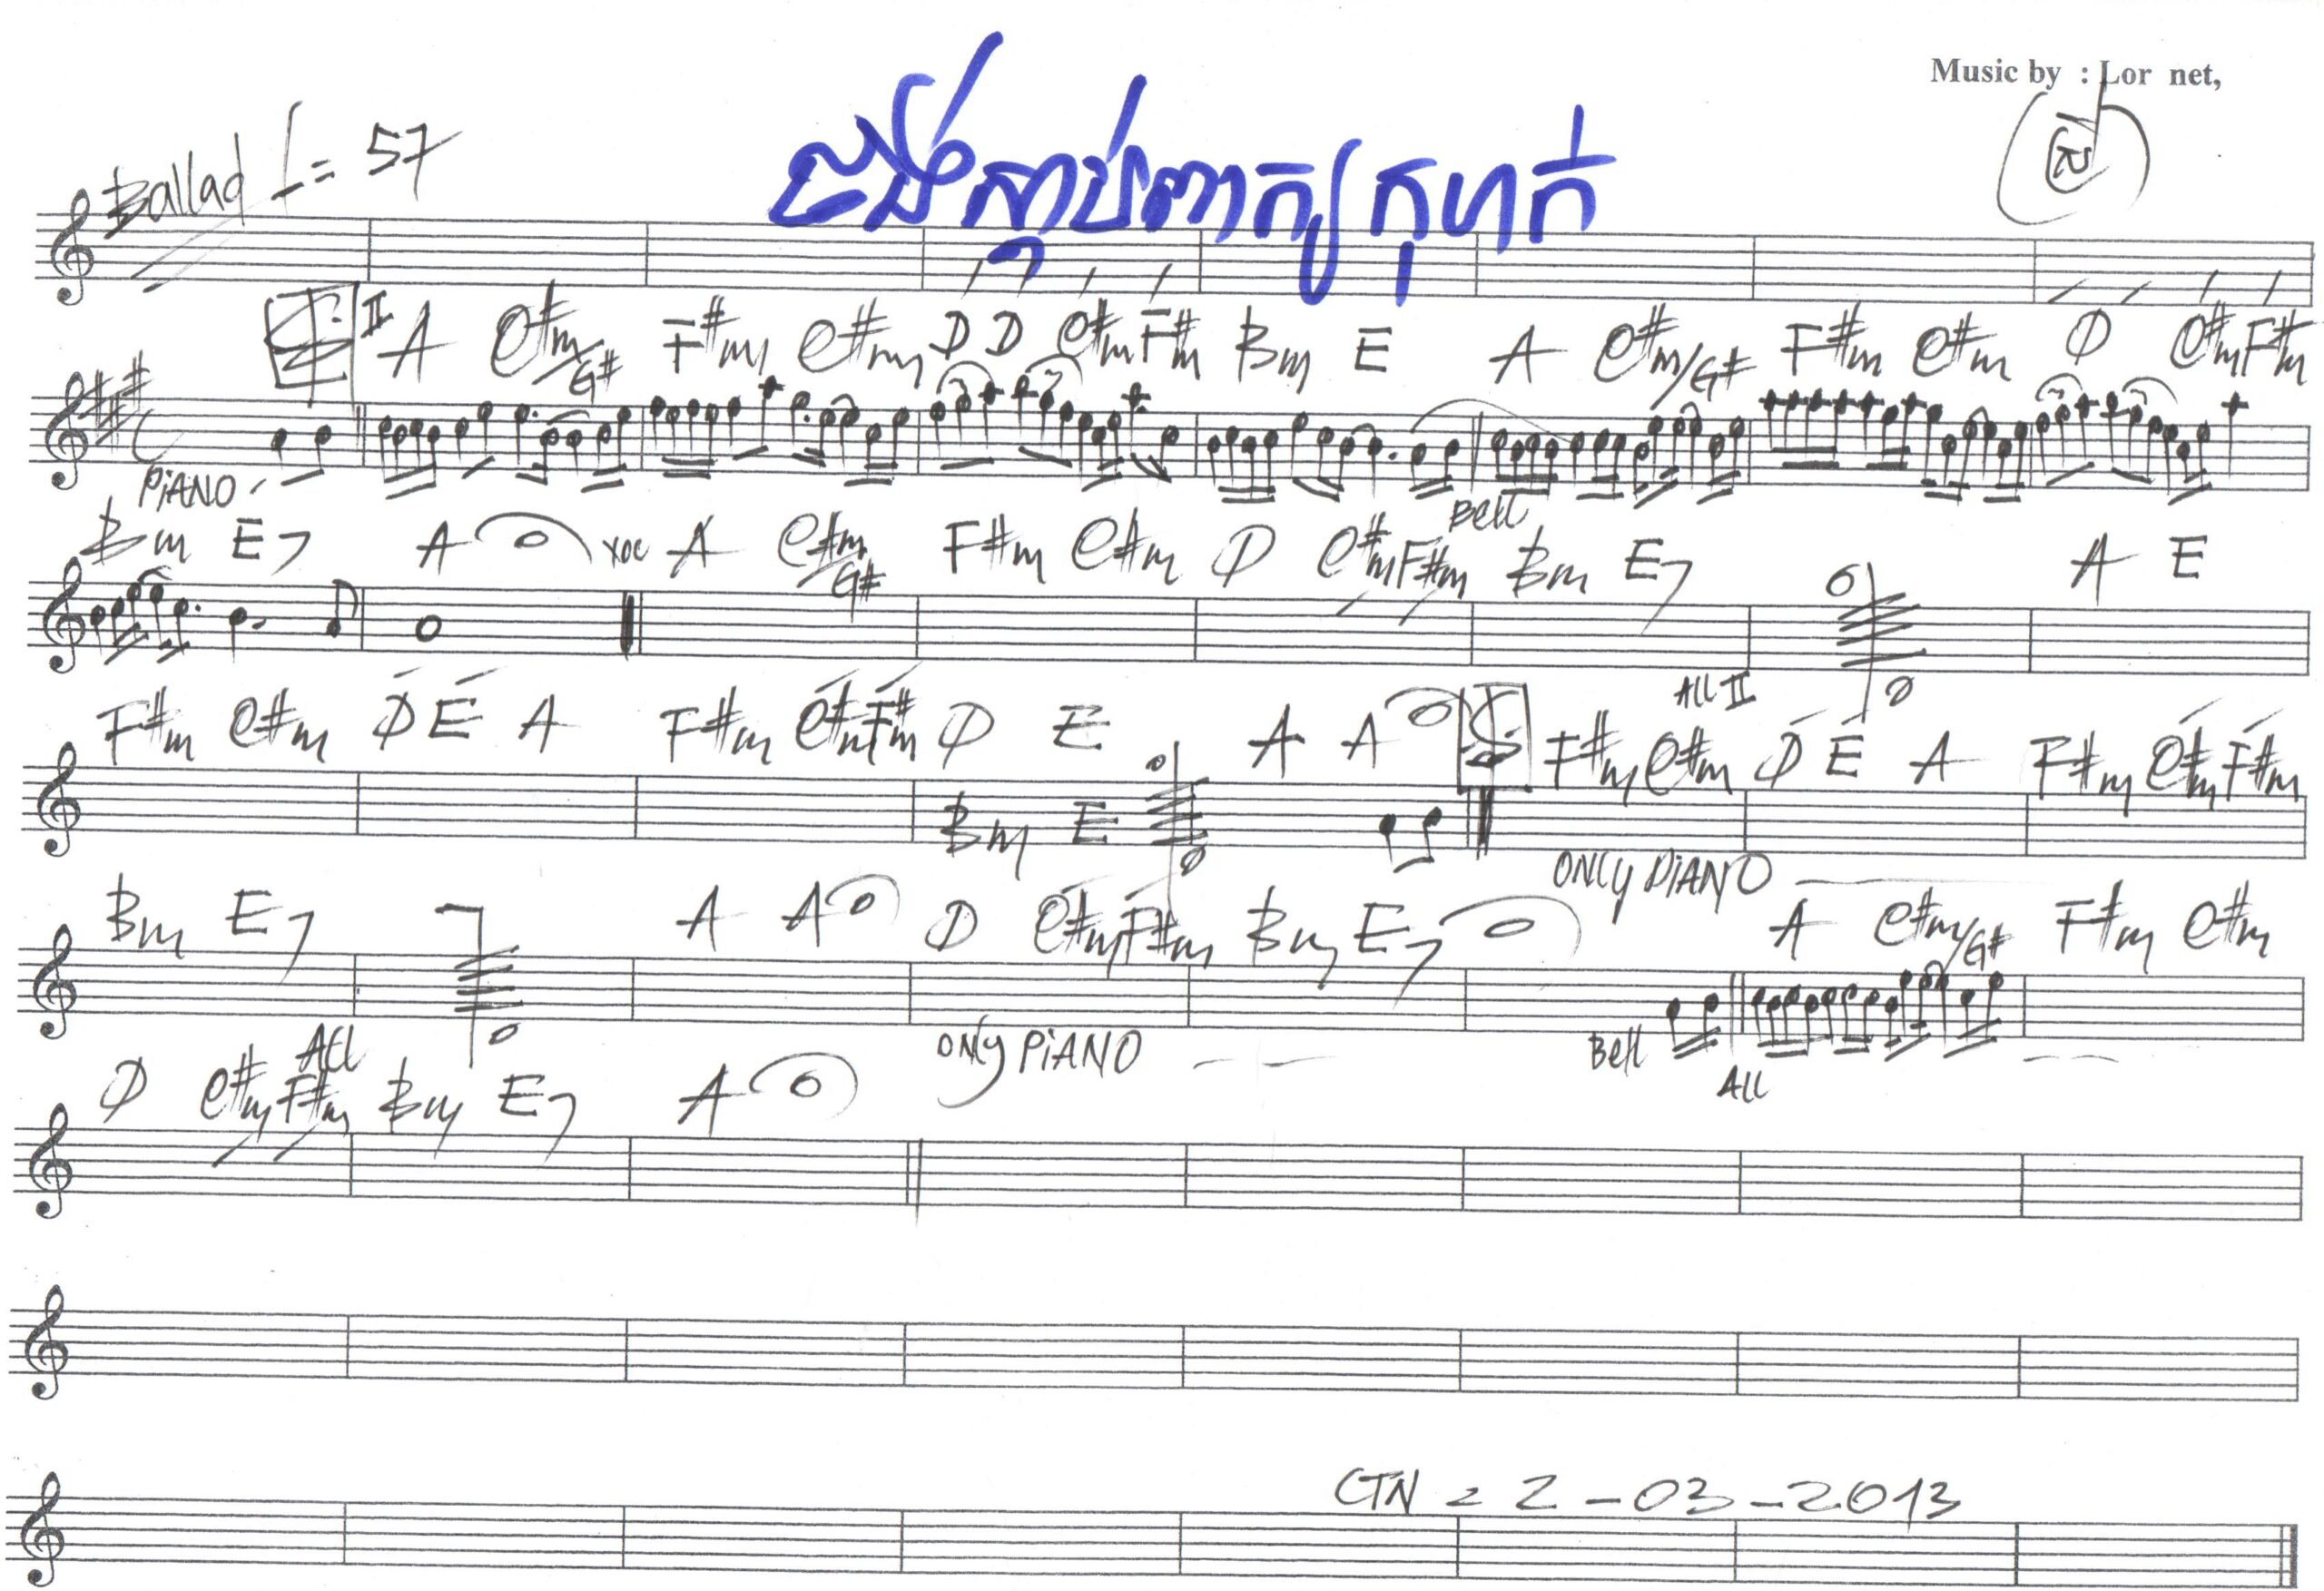 Music by : Lor net,
Ballad = 57
ចង់ស្ដាប់ពាក្យកុហក់
II A C#m/G# F#m C#m D D C#m F#m Bm E A C#m/G# F#m C#m D C#m F#m
PiANO
Bell
Bm E7 A A C#m/G# F#m C#m D C#m F#m Bm E7 A E
All II
F#m C#m D E A F#m C#m F#m D E A A F#m C#m D E A F#m C#m F#m
Bm E
ONLY PIANO
Bm E7 A A D C#m F#m Bm E7 A C#m/G# F#m C#m
All ONLY PiANO Bell All
D C#m F#m Bm E7 A
CTN = 2-03-2013